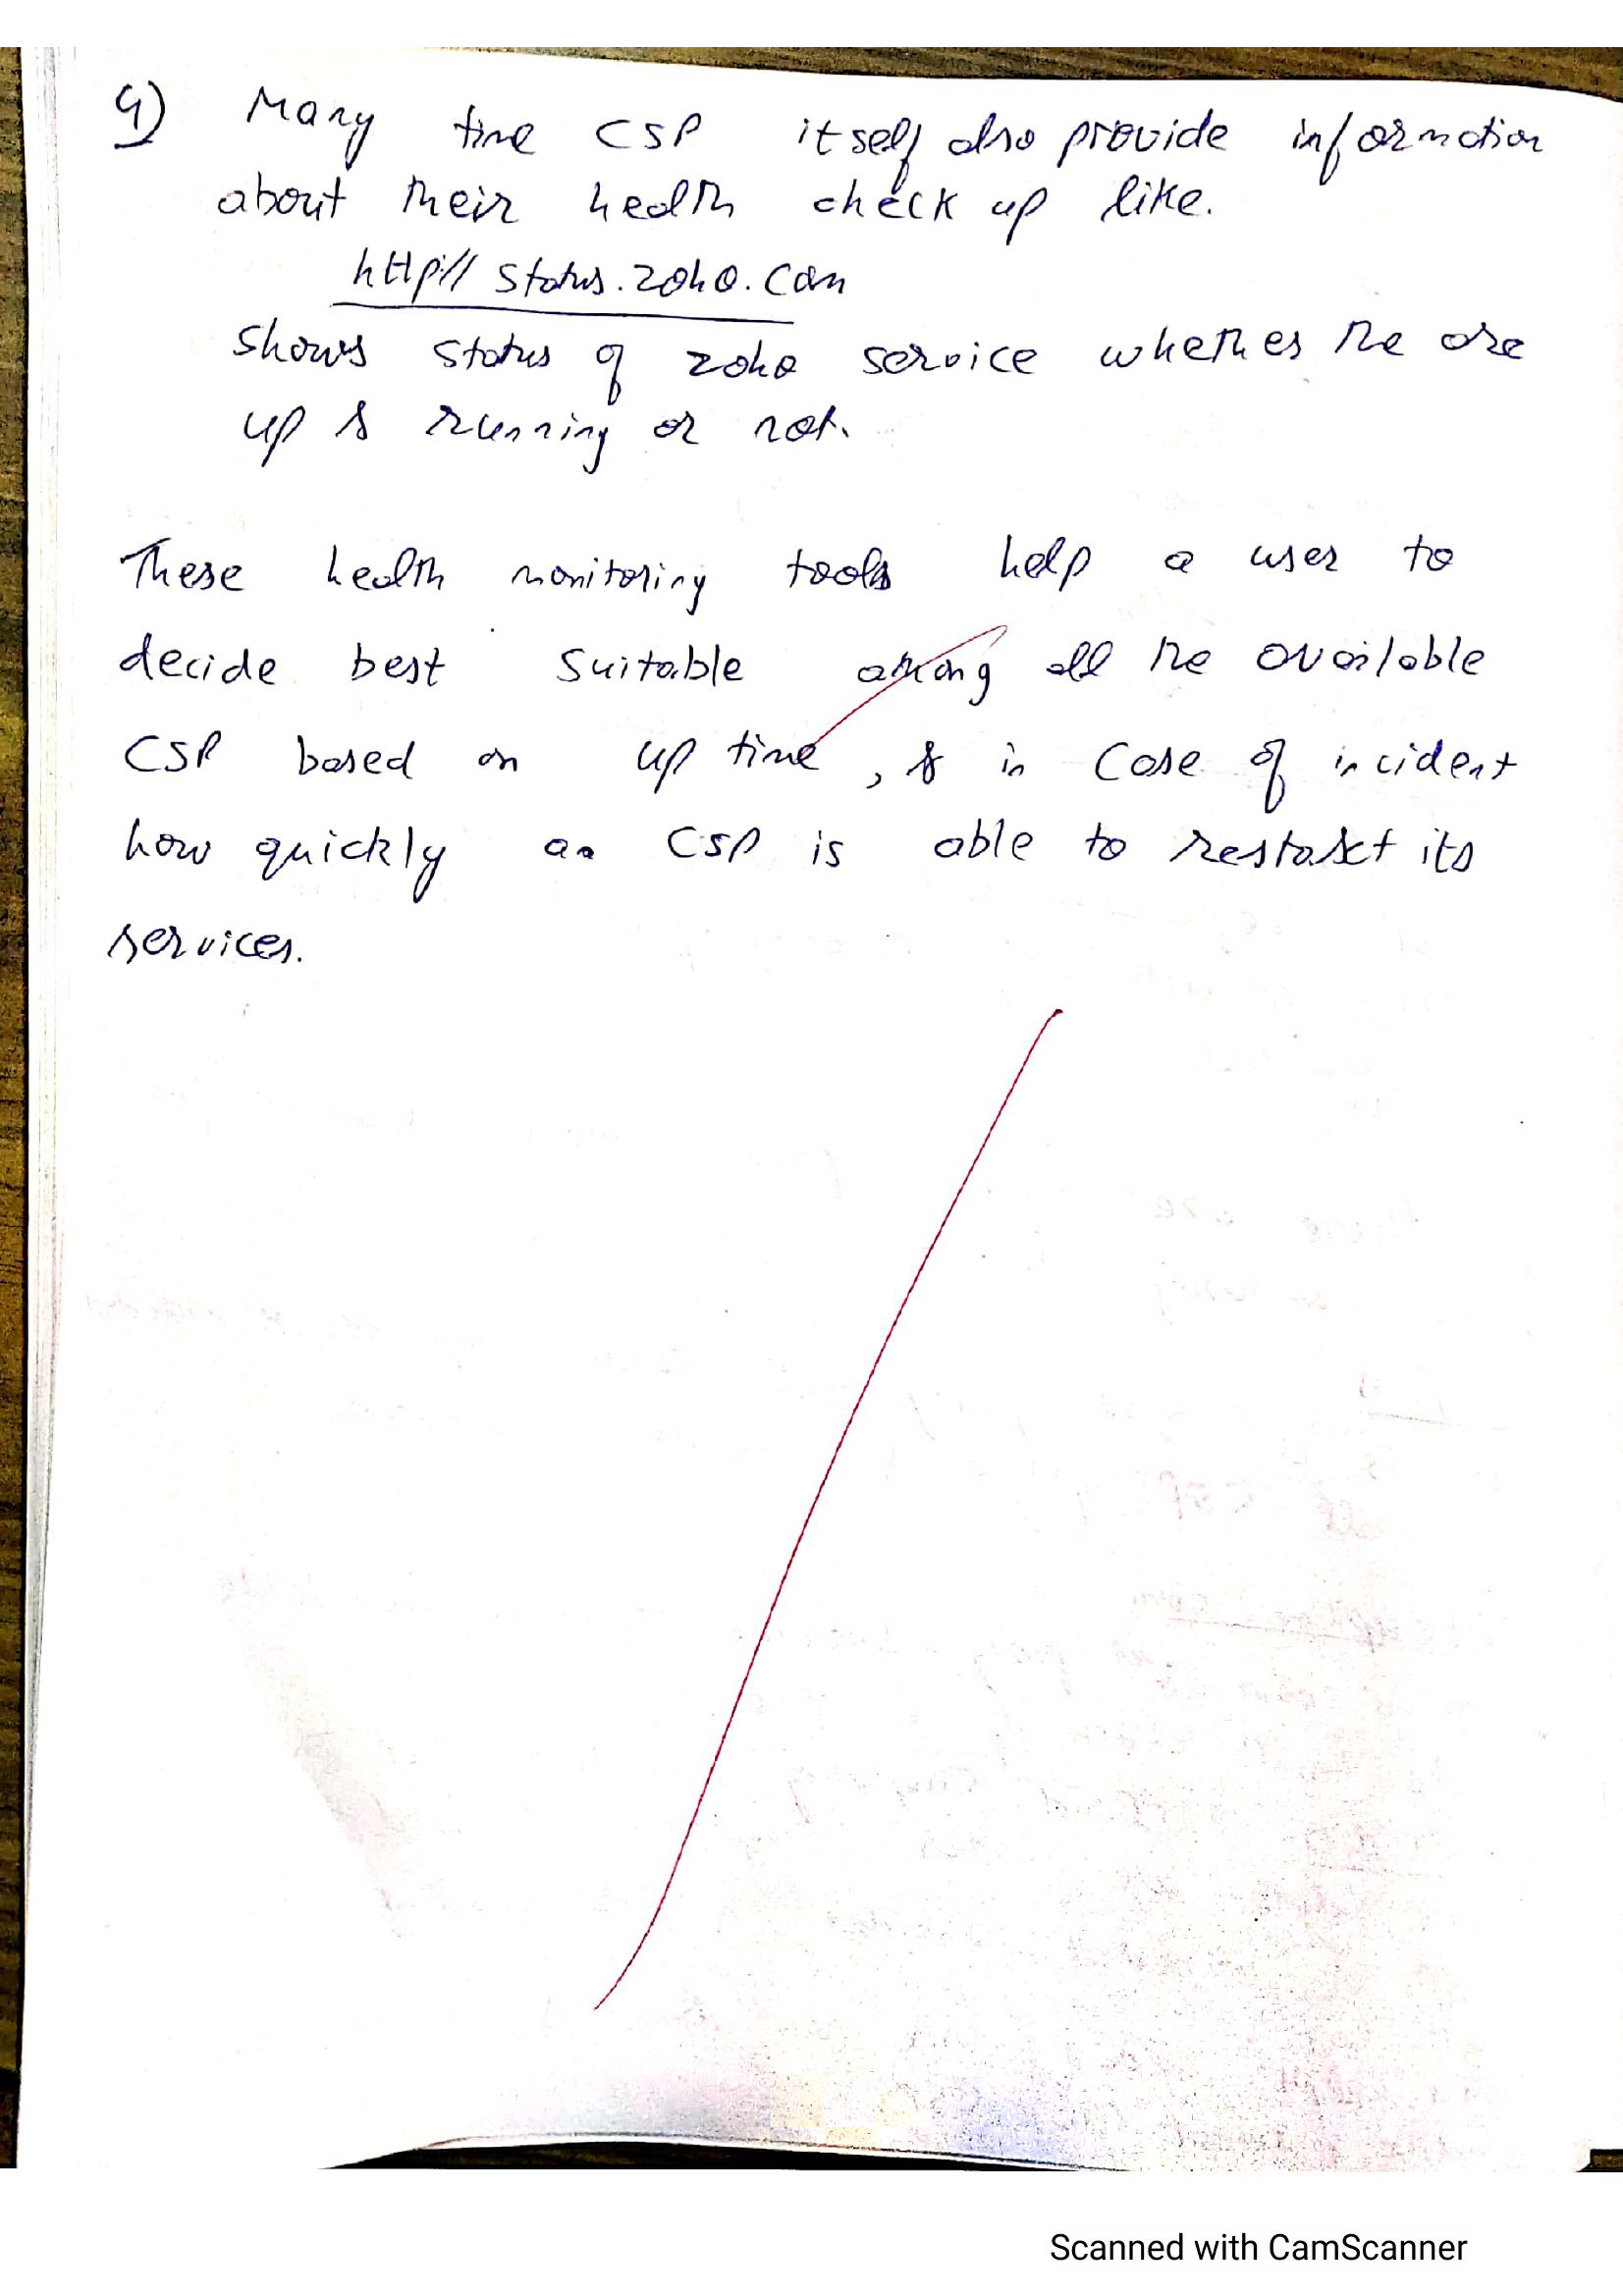 4) Many time CSP itself also provide information
about their health check up like.
http:// status.zoho.com
shows status of zoho service whether the are
up & running or not.
These health monitoring tools help a user to
decide best suitable among all the available
CSP based on up time, & in case of incident
how quickly an CSP is able to restart its
services.
Scanned with CamScanner